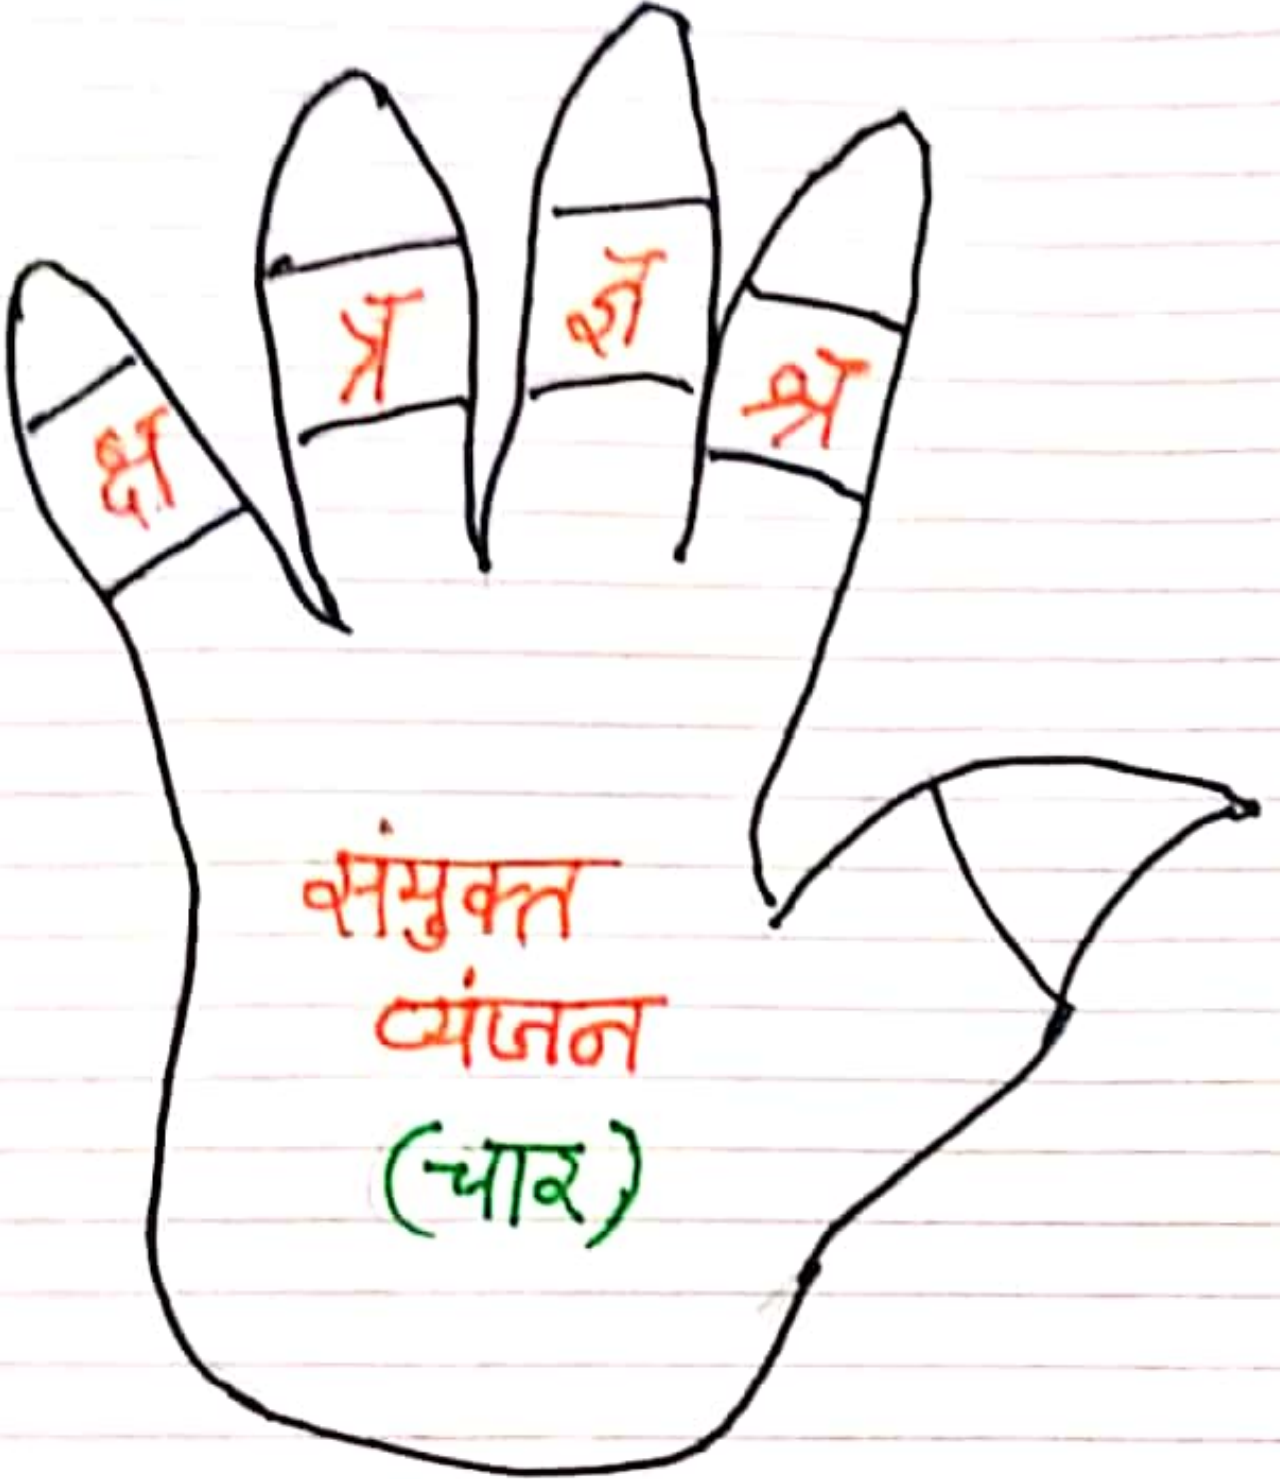 क्ष
त्र
ज्ञ
श्र
संयुक्त
व्यंजन
(चार)